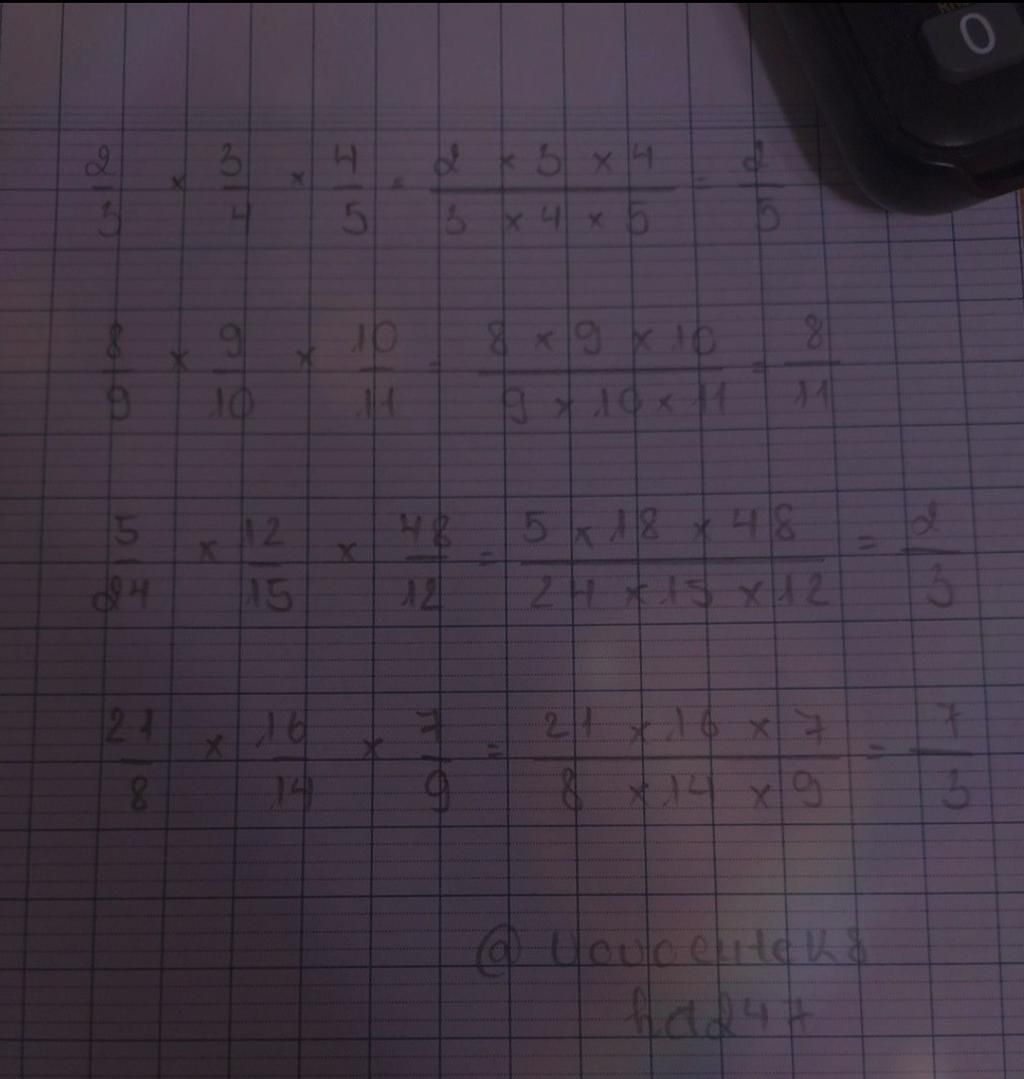 0
2/3 × 3/4 × 4/5 = 2 × 3 × 4 / 3 × 4 × 5 = 2/5
8/9 × 9/10 × 10/11 = 8 × 9 × 10 / 9 × 10 × 11 = 8/11
5/24 × 12/15 × 48/12 = 5 × 18 × 48 / 24 × 15 × 12 = 2/3
21/8 × 16/14 × 7/9 = 21 × 16 × 7 / 8 × 14 × 9 = 7/3